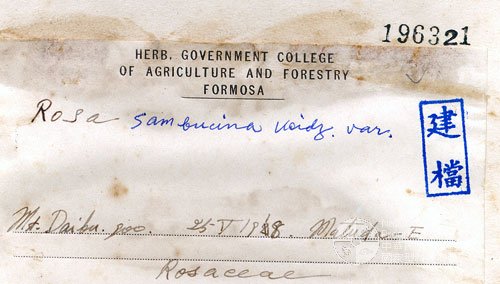 196321
HERB. GOVERNMENT COLLEGE
OF AGRICULTURE AND FORESTRY
FORMOSA
Rosa sambucina Koidz. var.
建檔
Mt. Daibu. 25 V 1928. Matuda-E
Rosaceae